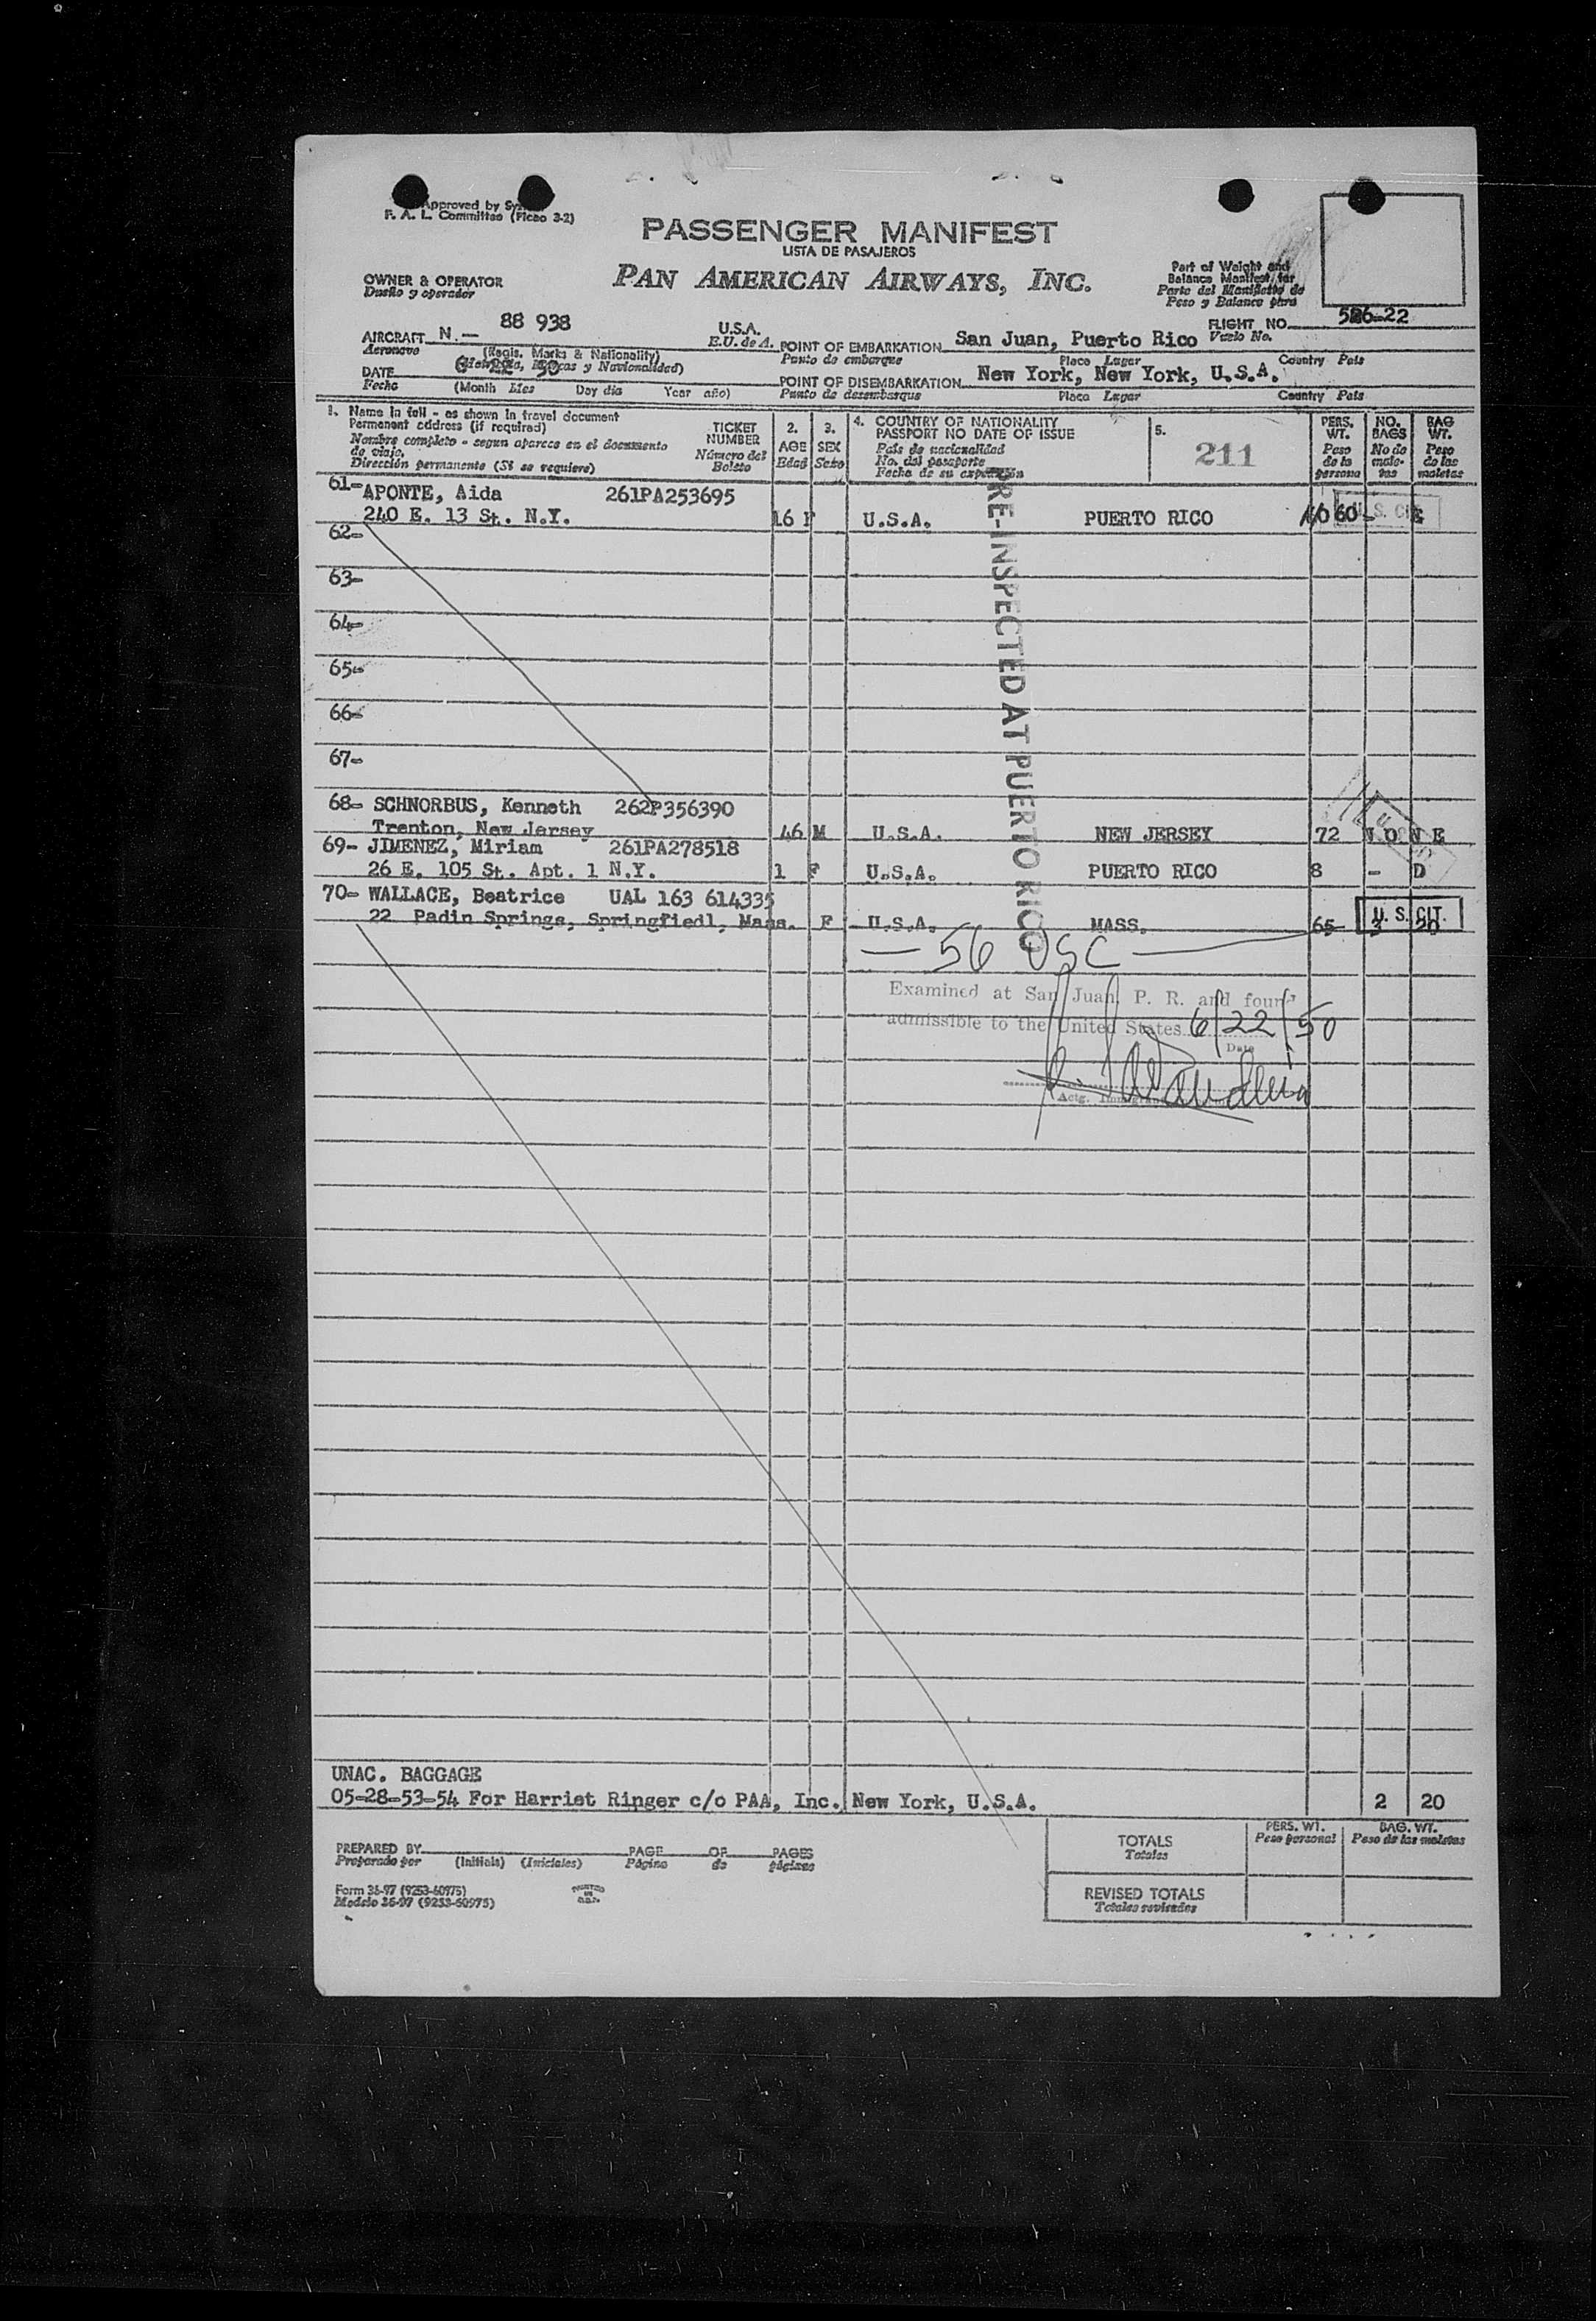 Approved by
F. A. L. Committee (Ficao 3-2)
PASSENGER MANIFEST
LISTA DE PASAJEROS
PAN AMERICAN AIRWAYS, INC.
OWNER & OPERATOR
Dueño y operador
Part of Weight and
Balance Manifest for
Parte del Manifiesto de
Peso y Balance para
AIRCRAFT N.- 88 938 U.S.A.
Aeronave (Regis. Marks & Nationality) E.U. de A.
POINT OF EMBARKATION San Juan, Puerto Rico FLIGHT NO. 526-22
Punto de embarque Place Lugar Country Pais Vuelo No.
DATE 6 22 50
Fecha (Month Mes Day dia Year año)
POINT OF DISEMBARKATION New York, New York, U.S.A.
Punto de desembarque Place Lugar Country Pais
1. Name in full - as shown in travel document
Permanent address (if required)
Nombre completo - segun aparece en el documento
de viaje.
Dirección permanente (Si se requiere)
TICKET
NUMBER
Número del
Boleto
2.
AGE
Edad
3.
SEX
Sexo
4. COUNTRY OF NATIONALITY
PASSPORT NO DATE OF ISSUE
País de nacionalidad
No. del pasaporte
Fecha de su expedición
5.
211
PERS.
WT.
Peso
de la
persona
NO.
BAGS
No de
male-
tas
BAG
WT.
Peso
de las
maletas
61- APONTE, Aida 261PA253695
240 E. 13 St. N.Y. 16 F U.S.A. PUERTO RICO 60 -
U. S. CIT.
62-
63-
64-
65-
66-
67-
PRE-INSPECTED AT PUERTO RICO
68- SCHNORBUS, Kenneth 262P356390
Trenton, New Jersey 46 M U.S.A. NEW JERSEY 72 N O N E
69- JIMENEZ, Miriam 261PA278518
26 E. 105 St. Apt. 1 N.Y. 1 F U.S.A. PUERTO RICO 8 - D
70- WALLACE, Beatrice UAL 163 614335
22 Padin Springs, Springfiedl, Mass. F U.S.A. MASS. 65 3 20
U. S. CIT.
— 56 USC —
Examined at San Juan, P. R. and found
admissible to the United States 6/22/50
Date
Actg.
UNAC. BAGGAGE
05-28-53-54 For Harriet Ringer c/o PAA, Inc. New York, U.S.A. 2 20
PREPARED BY PAGE OF PAGES
Preparado por (Initials) (Iniciales) Página de páginas
Form 36-97 (9253-60975)
Modelo 36-97 (9253-60975)
PERS. WT. BAG. WT.
Peso personal Peso de las maletas
TOTALS
Totales
REVISED TOTALS
Totales revisados